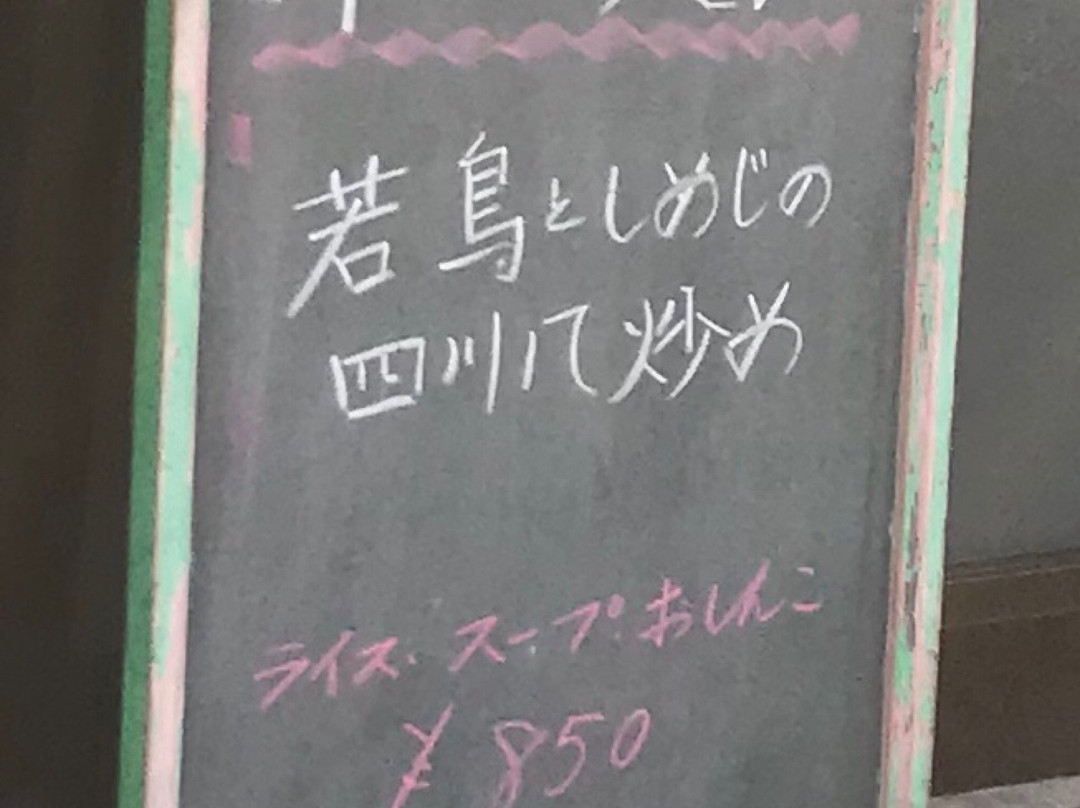 若鳥としめじの
四川炒め
ライス・スープ・おしんこ
¥850